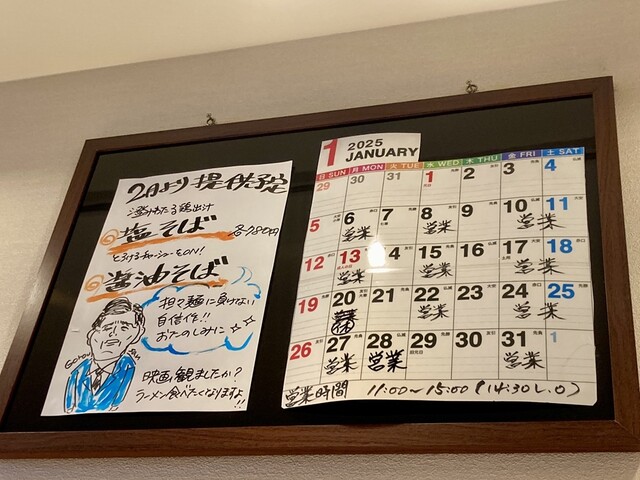 2月より提供予定
澄みわたる鶏出汁
塩そば
各780円
とろけるチャーシューをON!
醤油そば
担々麺に負けない
自信作!!
おたのしみに☆☆
Gorou San
映画観ましたか?
ラーメン食べたくなりますよ!!
1 2025 JANUARY
日 SUN 月 MON 火 TUE 水 WED 木 THU 金 FRI 土 SAT
29 30 31 1 2 3 4
5 6 7 8 9 10 11
営業 営業 営業
12 13 14 15 16 17 18
営業 営業 営業
19 20 21 22 23 24 25
営業 営業
26 27 28 29 30 31 1
営業 営業 営業
営業時間 11:00~15:00 (14:30 L.O)